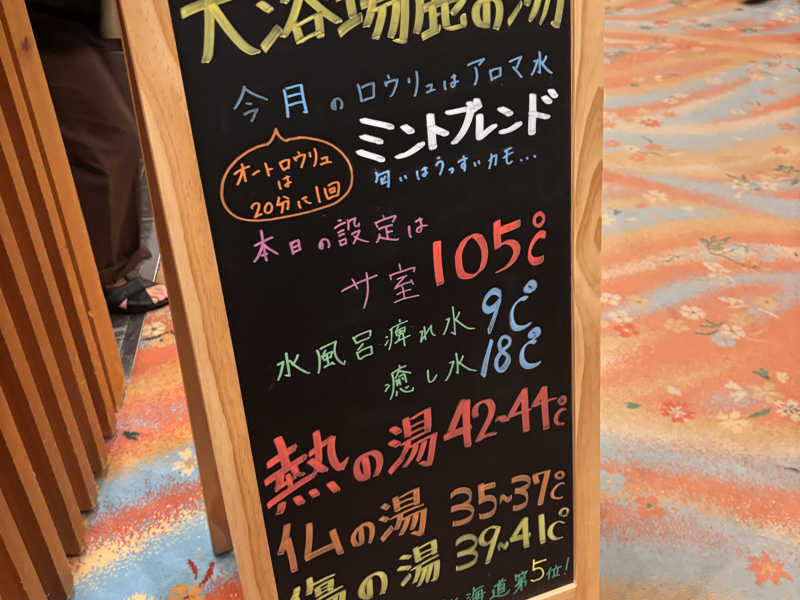 大浴場鹿の湯
今月のロウリュはアロマ水
ミントブレンド
匂いはうっすぃカモ...
オートロウリュ
は
20分に1回
本日の設定は
サ室 105℃
水風呂痺れ水 9℃
癒し水 18℃
熱の湯 42~44℃
仏の湯 35~37℃
傷の湯 39~41℃
海道第5位!